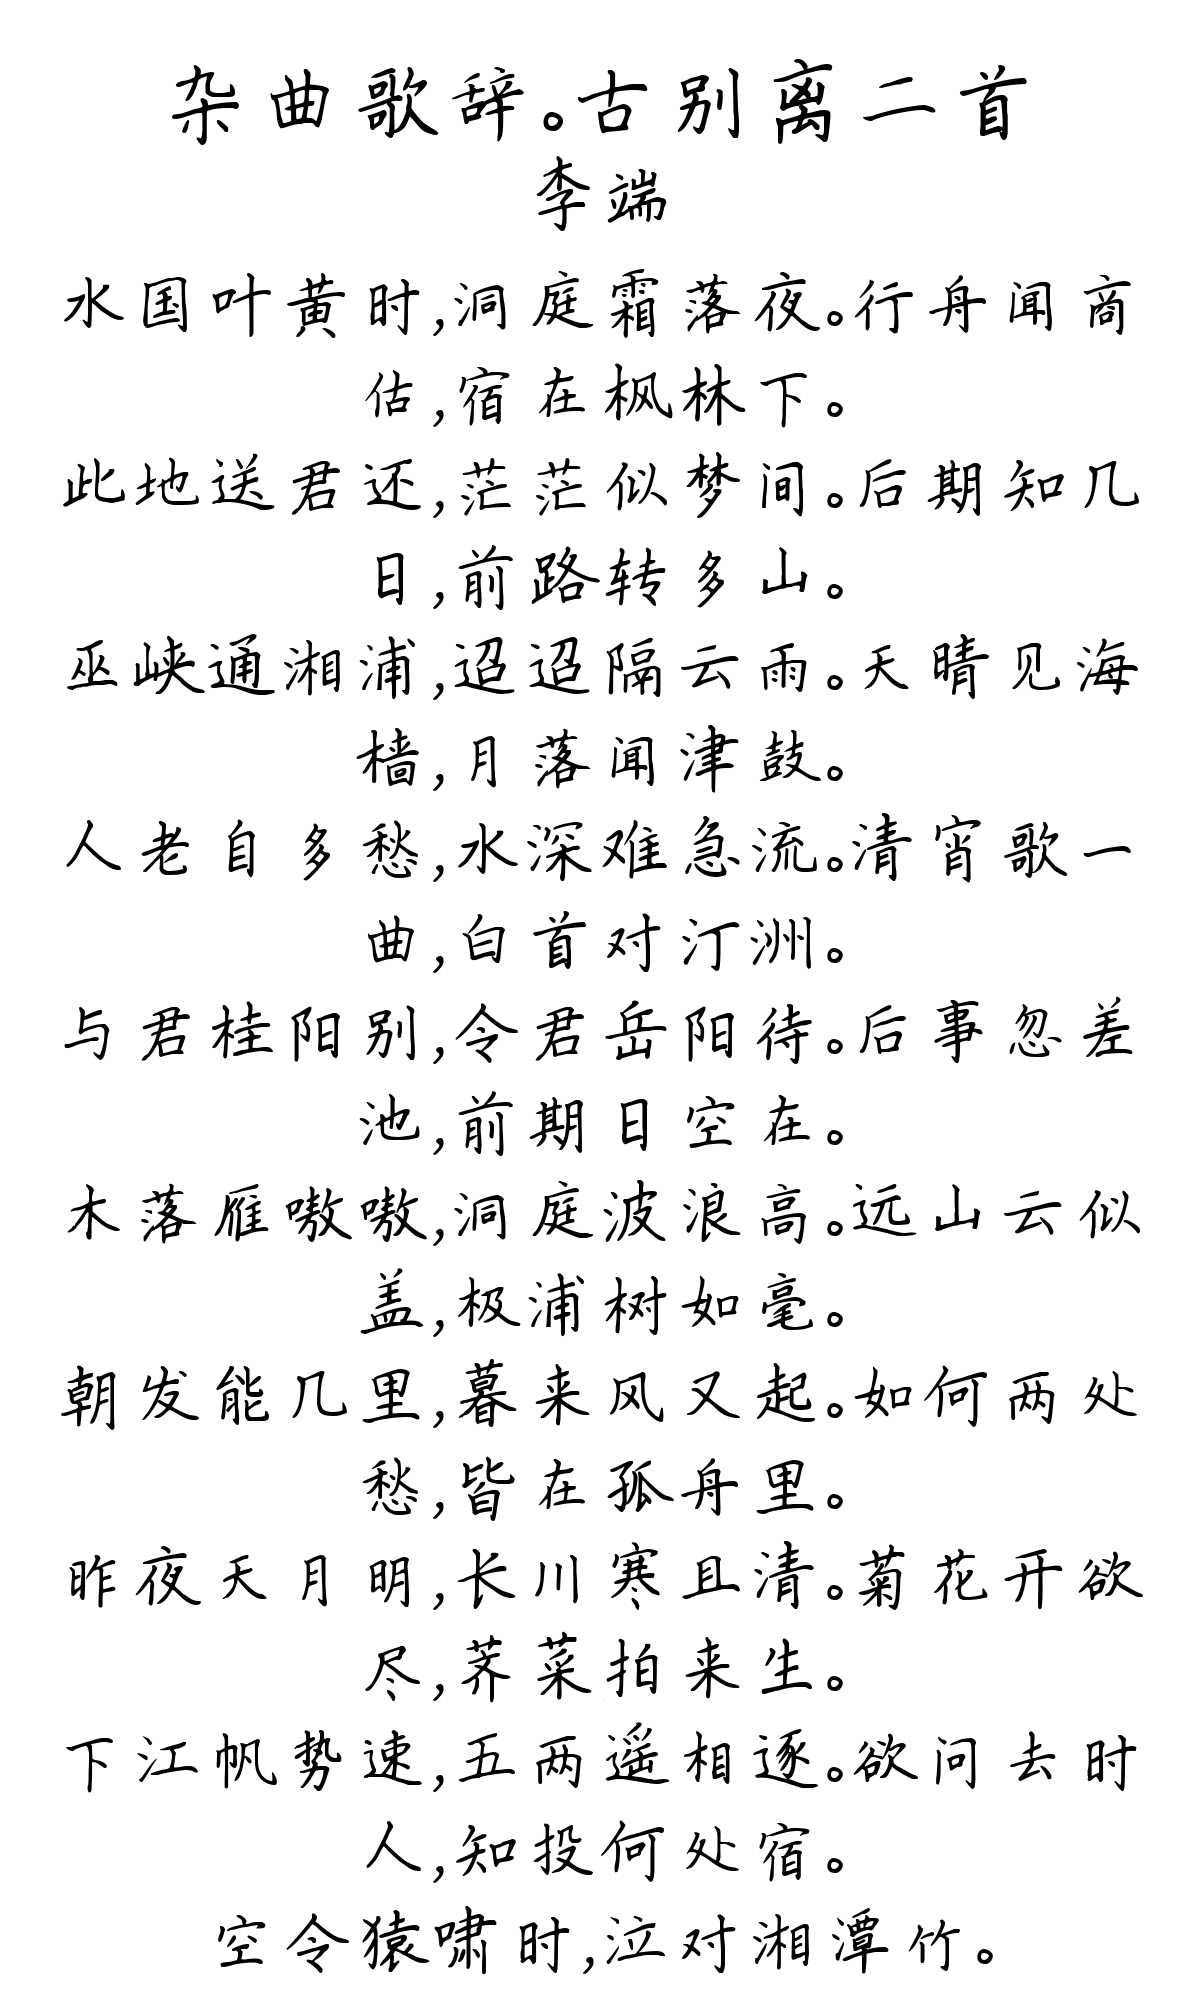 杂曲歌辞。古别离二首
李端
水国叶黄时,洞庭霜落夜。行舟闻商
估,宿在枫林下。
此地送君还,茫茫似梦间。后期知几
日,前路转多山。
巫峡通湘浦,迢迢隔云雨。天晴见海
樯,月落闻津鼓。
人老自多愁,水深难急流。清宵歌一
曲,白首对汀洲。
与君桂阳别,令君岳阳待。后事忽差
池,前期日空在。
木落雁嗷嗷,洞庭波浪高。远山云似
盖,极浦树如毫。
朝发能几里,暮来风又起。如何两处
愁,皆在孤舟里。
昨夜天月明,长川寒且清。菊花开欲
尽,荠菜拍来生。
下江帆势速,五两遥相逐。欲问去时
人,知投何处宿。
空令猿啸时,泣对湘潭竹。